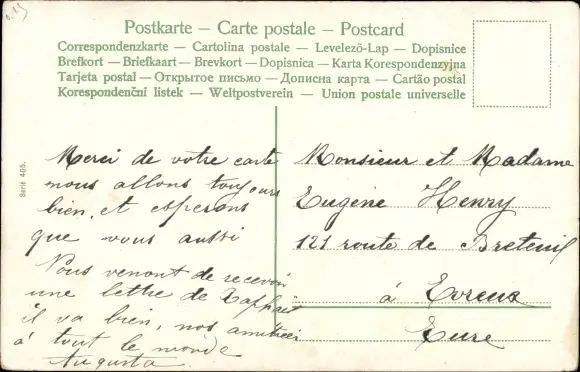 Postkarte — Carte postale — Postcard
Correspondenzkarte — Cartolina postale — Levelező-Lap — Dopisnice
Brefkort — Briefkaart — Brevkort — Dopisnica — Karta Korespondenzyjna
Tarjeta postal — Открытое письмо — Дописна карта — Cartão postal
Korespondenční listek — Weltpostverein — Union postale universelle
Serie 405.
Merci de votre carte
nous allons toujours
bien, et esperons
que vous aussi
Nous venont de recevoir
une lettre de Raphaël
il va bien, nos amitiés
à tout le monde
Augusta.
Monsieur et Madame
Eugène Henry
121 route de Breteuil
à Evreux
Eure